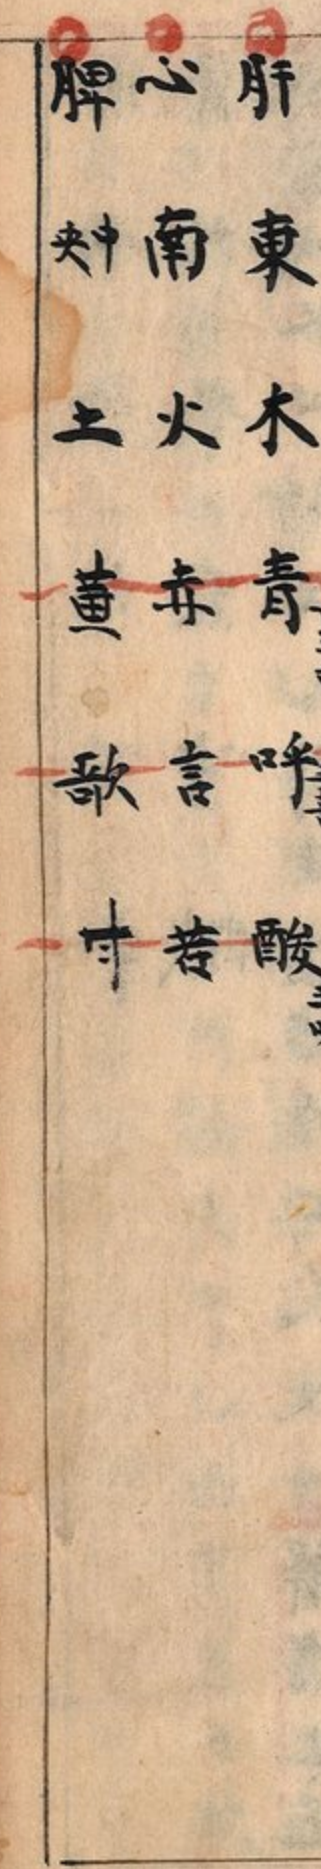 肝 東 木 青 呼 酸
心 南 火 赤 言 苦
脾 中央 土 黄 歌 甘